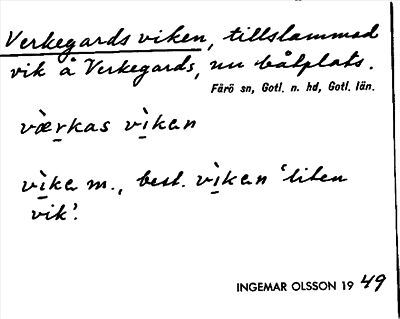 Verkegards viken, tillslammad
vik å Verkegards, nu båtplats.
Fårö sn, Gotl. n. hd, Gotl. län.
væ̀r̲kas vì̲kan
vì̲ka m., best. vì̲kan 'liten
vik'.
INGEMAR OLSSON 19 49